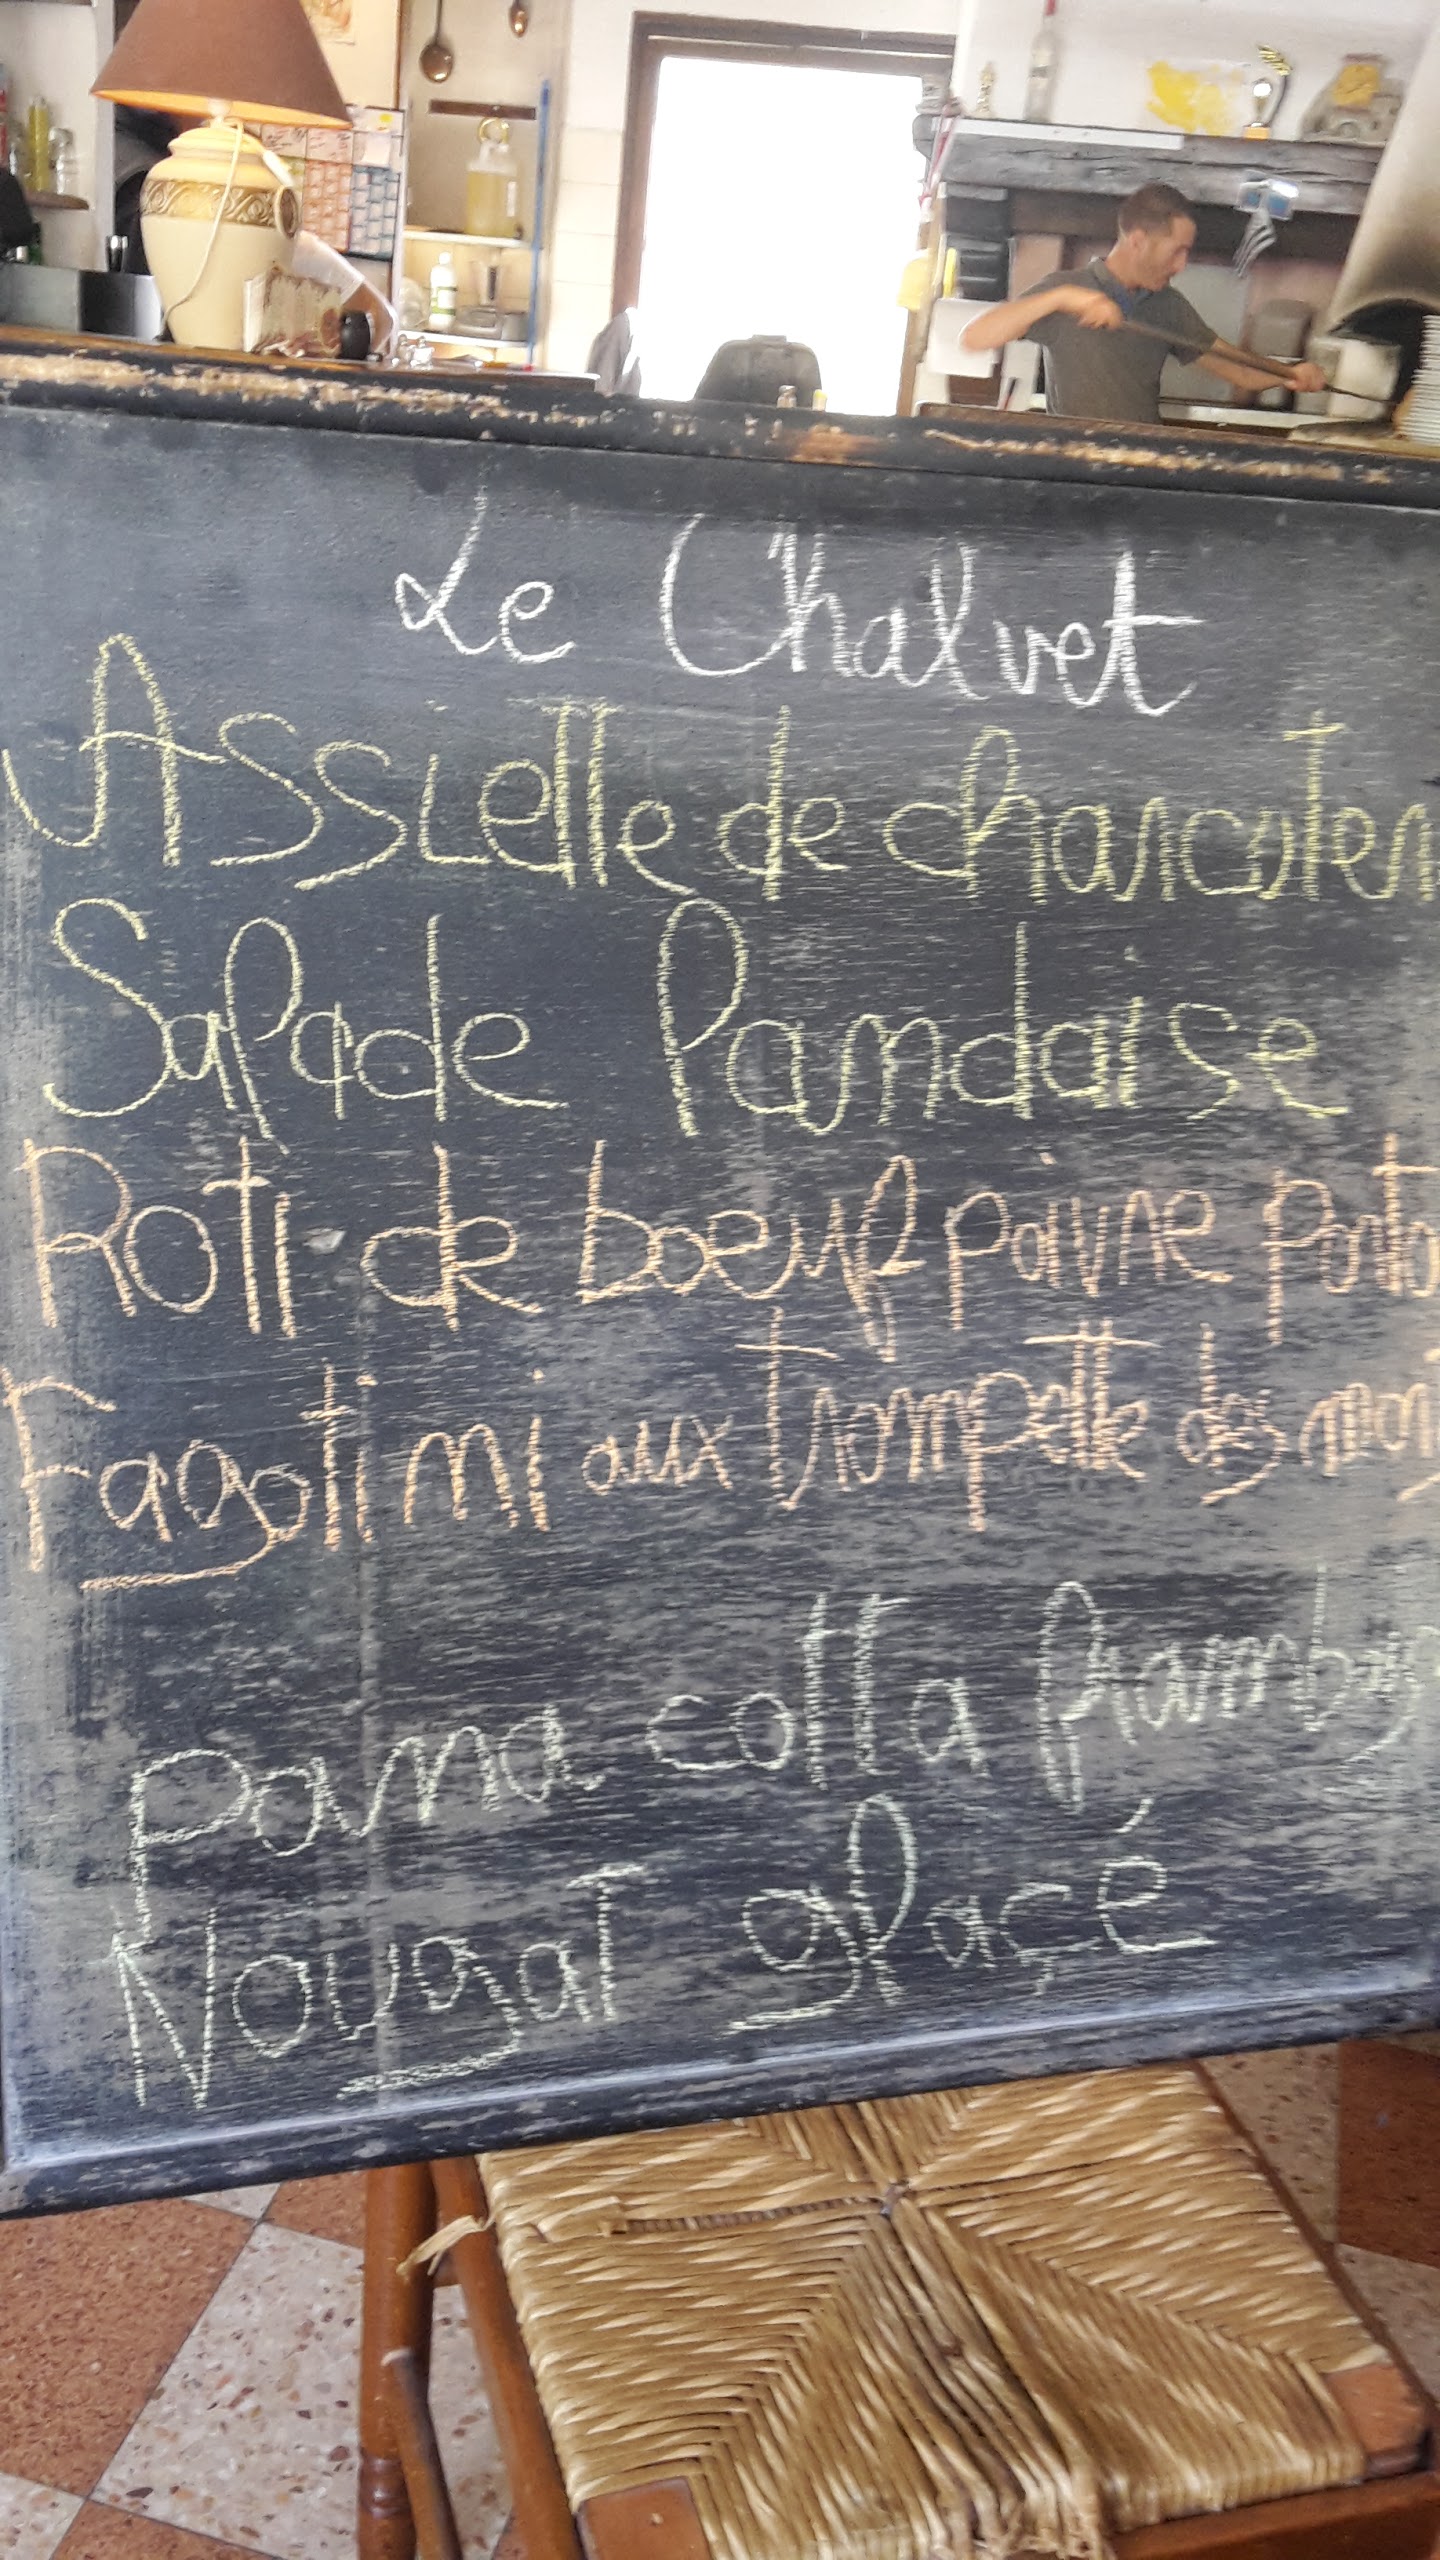 Le Chalvet
Assiette de charcuter
Salade Landaise
Roti de boeuf poivre porto
Fagotini aux trompette des mor
Pana cotta framb
Nougat glaçé